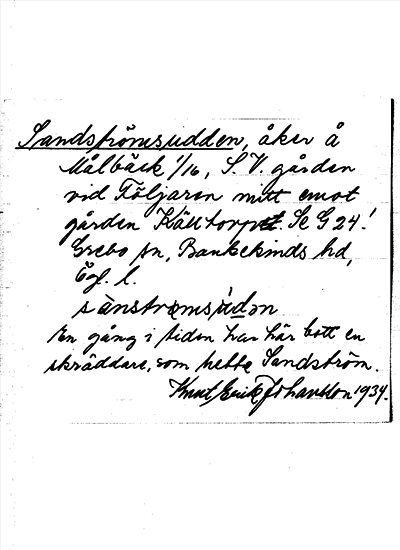 Sandströmsudden, åker å
Målbäck 1/16, S.V. gården
vid Följaren mitt emot
gården Källtorpet. Se G 24!
Grebo sn, Bankekinds hd,
Ögl. l.
sànstrømsùdən
En gång i tiden har här bott en
skräddare, som hette Sandström.
Knut Erik Johansson 1934.